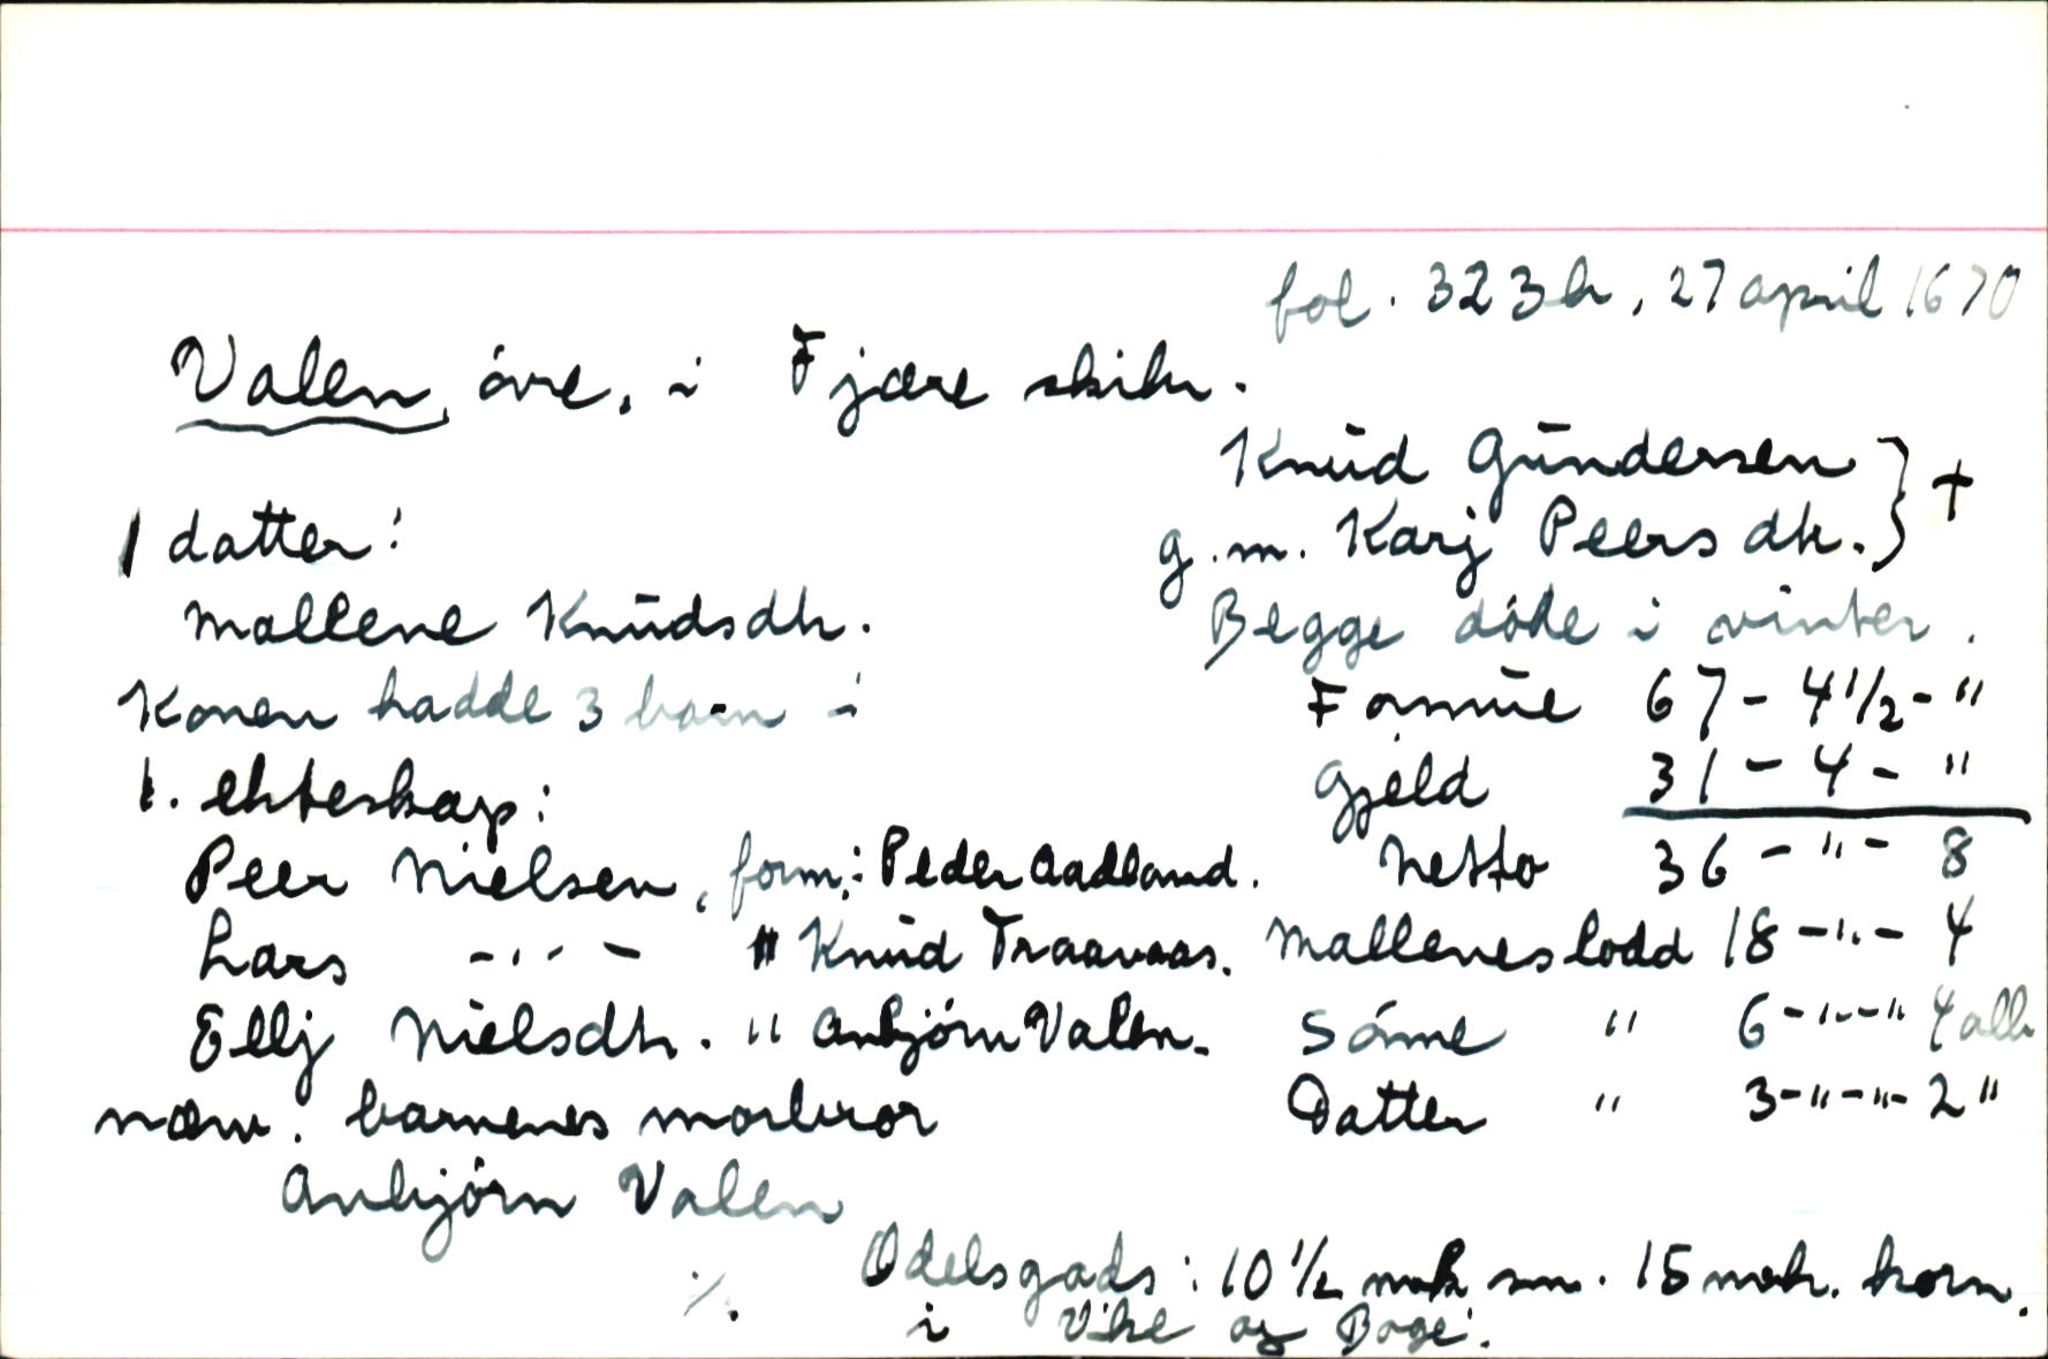 fol. 323b, 27 april 1670
Valen, övre, i Fjære skibr.
Knud Gundersen } +
g.m. Karj Peersdtr. }
1 datter:
Mallene Knudsdtr.
Begge döde i vinter.
Konen hadde 3 barn i
1. ekteskap:
Formue 67 - 4 1/2 - "
Gjeld 31 - 4 - "
Peer Nielsen, form.: Peder Aadland.
Netto 36 - " - 8
Lars - " - " Knud Traavaas.
Mallenes lodd 18 - " - 4
Ellj Nielsdtr. " Anbjörn Valen.
Sönne " 6 - " - " 4 alb
Datter " 3 - " - " - 2 "
nærv. barnenes morbror
Anbjörn Valen
Odelsgods: 10 1/2 mrk sm. 15 mrk. korn.
i Vike og Boge.
./.